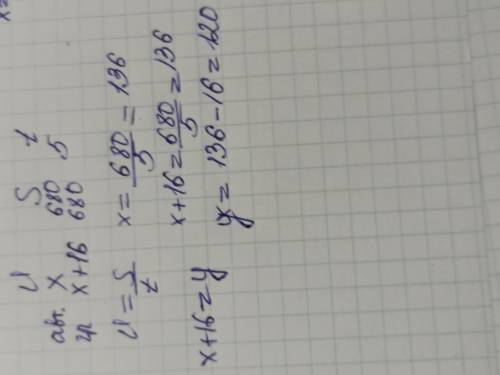 υ S t
авт. x 680 5
гр x+16 680
υ = S/t x = 680/5 = 136
x+16 = 680/5 = 136
x+16 = y y = 136 - 16 = 120